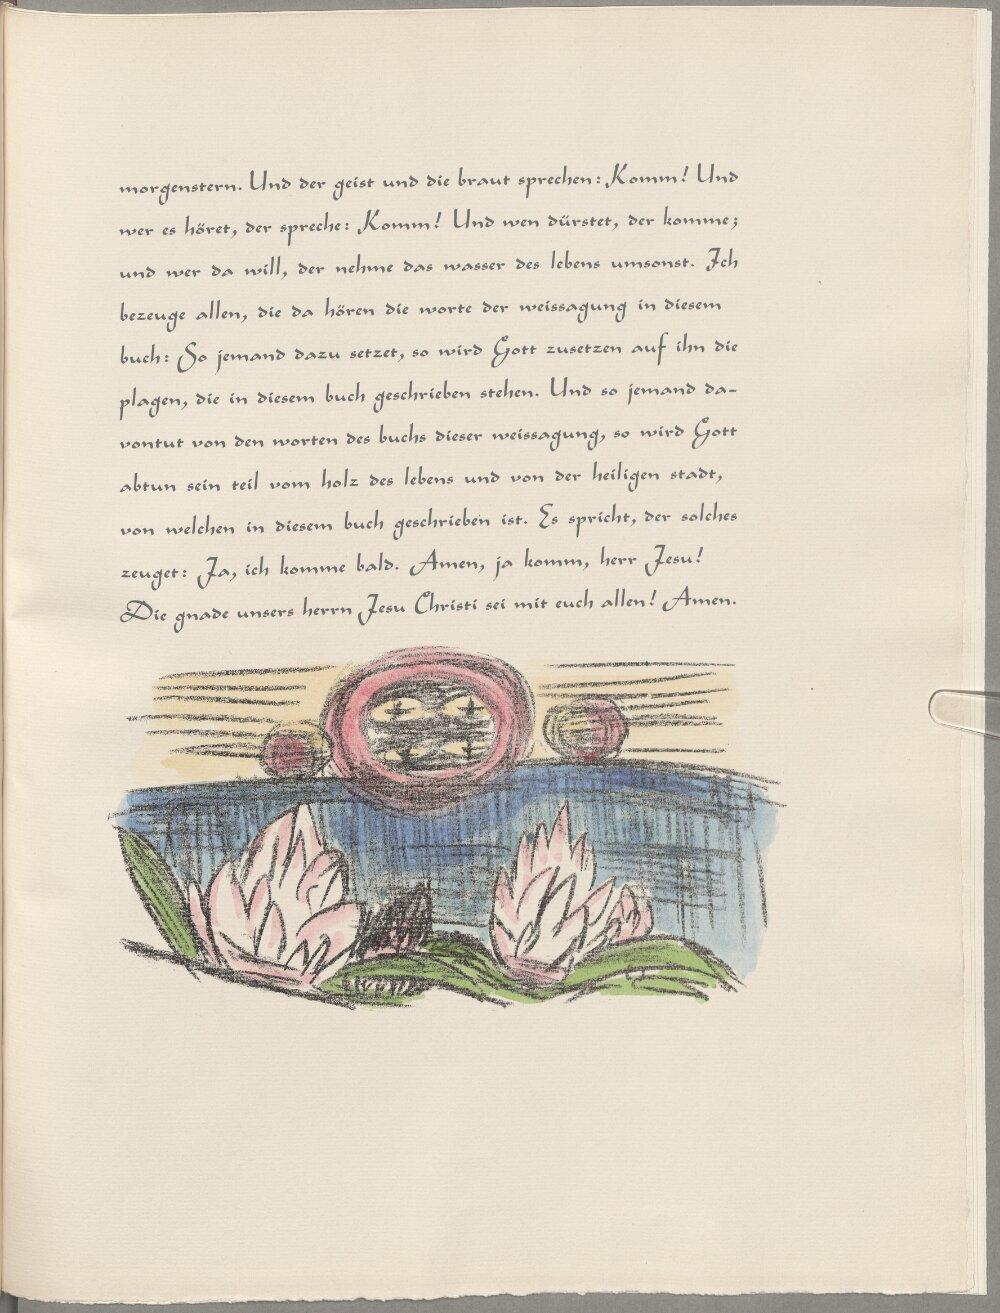 morgenstern. Und der geist und die braut sprechen: Komm! Und
wer es höret, der spreche: Komm! Und wen dürstet, der komme;
und wer da will, der nehme das wasser des lebens umsonst. Ich
bezeuge allen, die da hören die worte der weissagung in diesem
buch: So jemand dazu setzet, so wird Gott zusetzen auf ihn die
plagen, die in diesem buch geschrieben stehen. Und so jemand da-
vontut von den worten des buchs dieser weissagung, so wird Gott
abtun sein teil vom holz des lebens und von der heiligen stadt,
von welchen in diesem buch geschrieben ist. Es spricht, der solches
zeuget: Ja, ich komme bald. Amen, ja komm, herr Jesu!
Die gnade unsers herrn Jesu Christi sei mit euch allen! Amen.